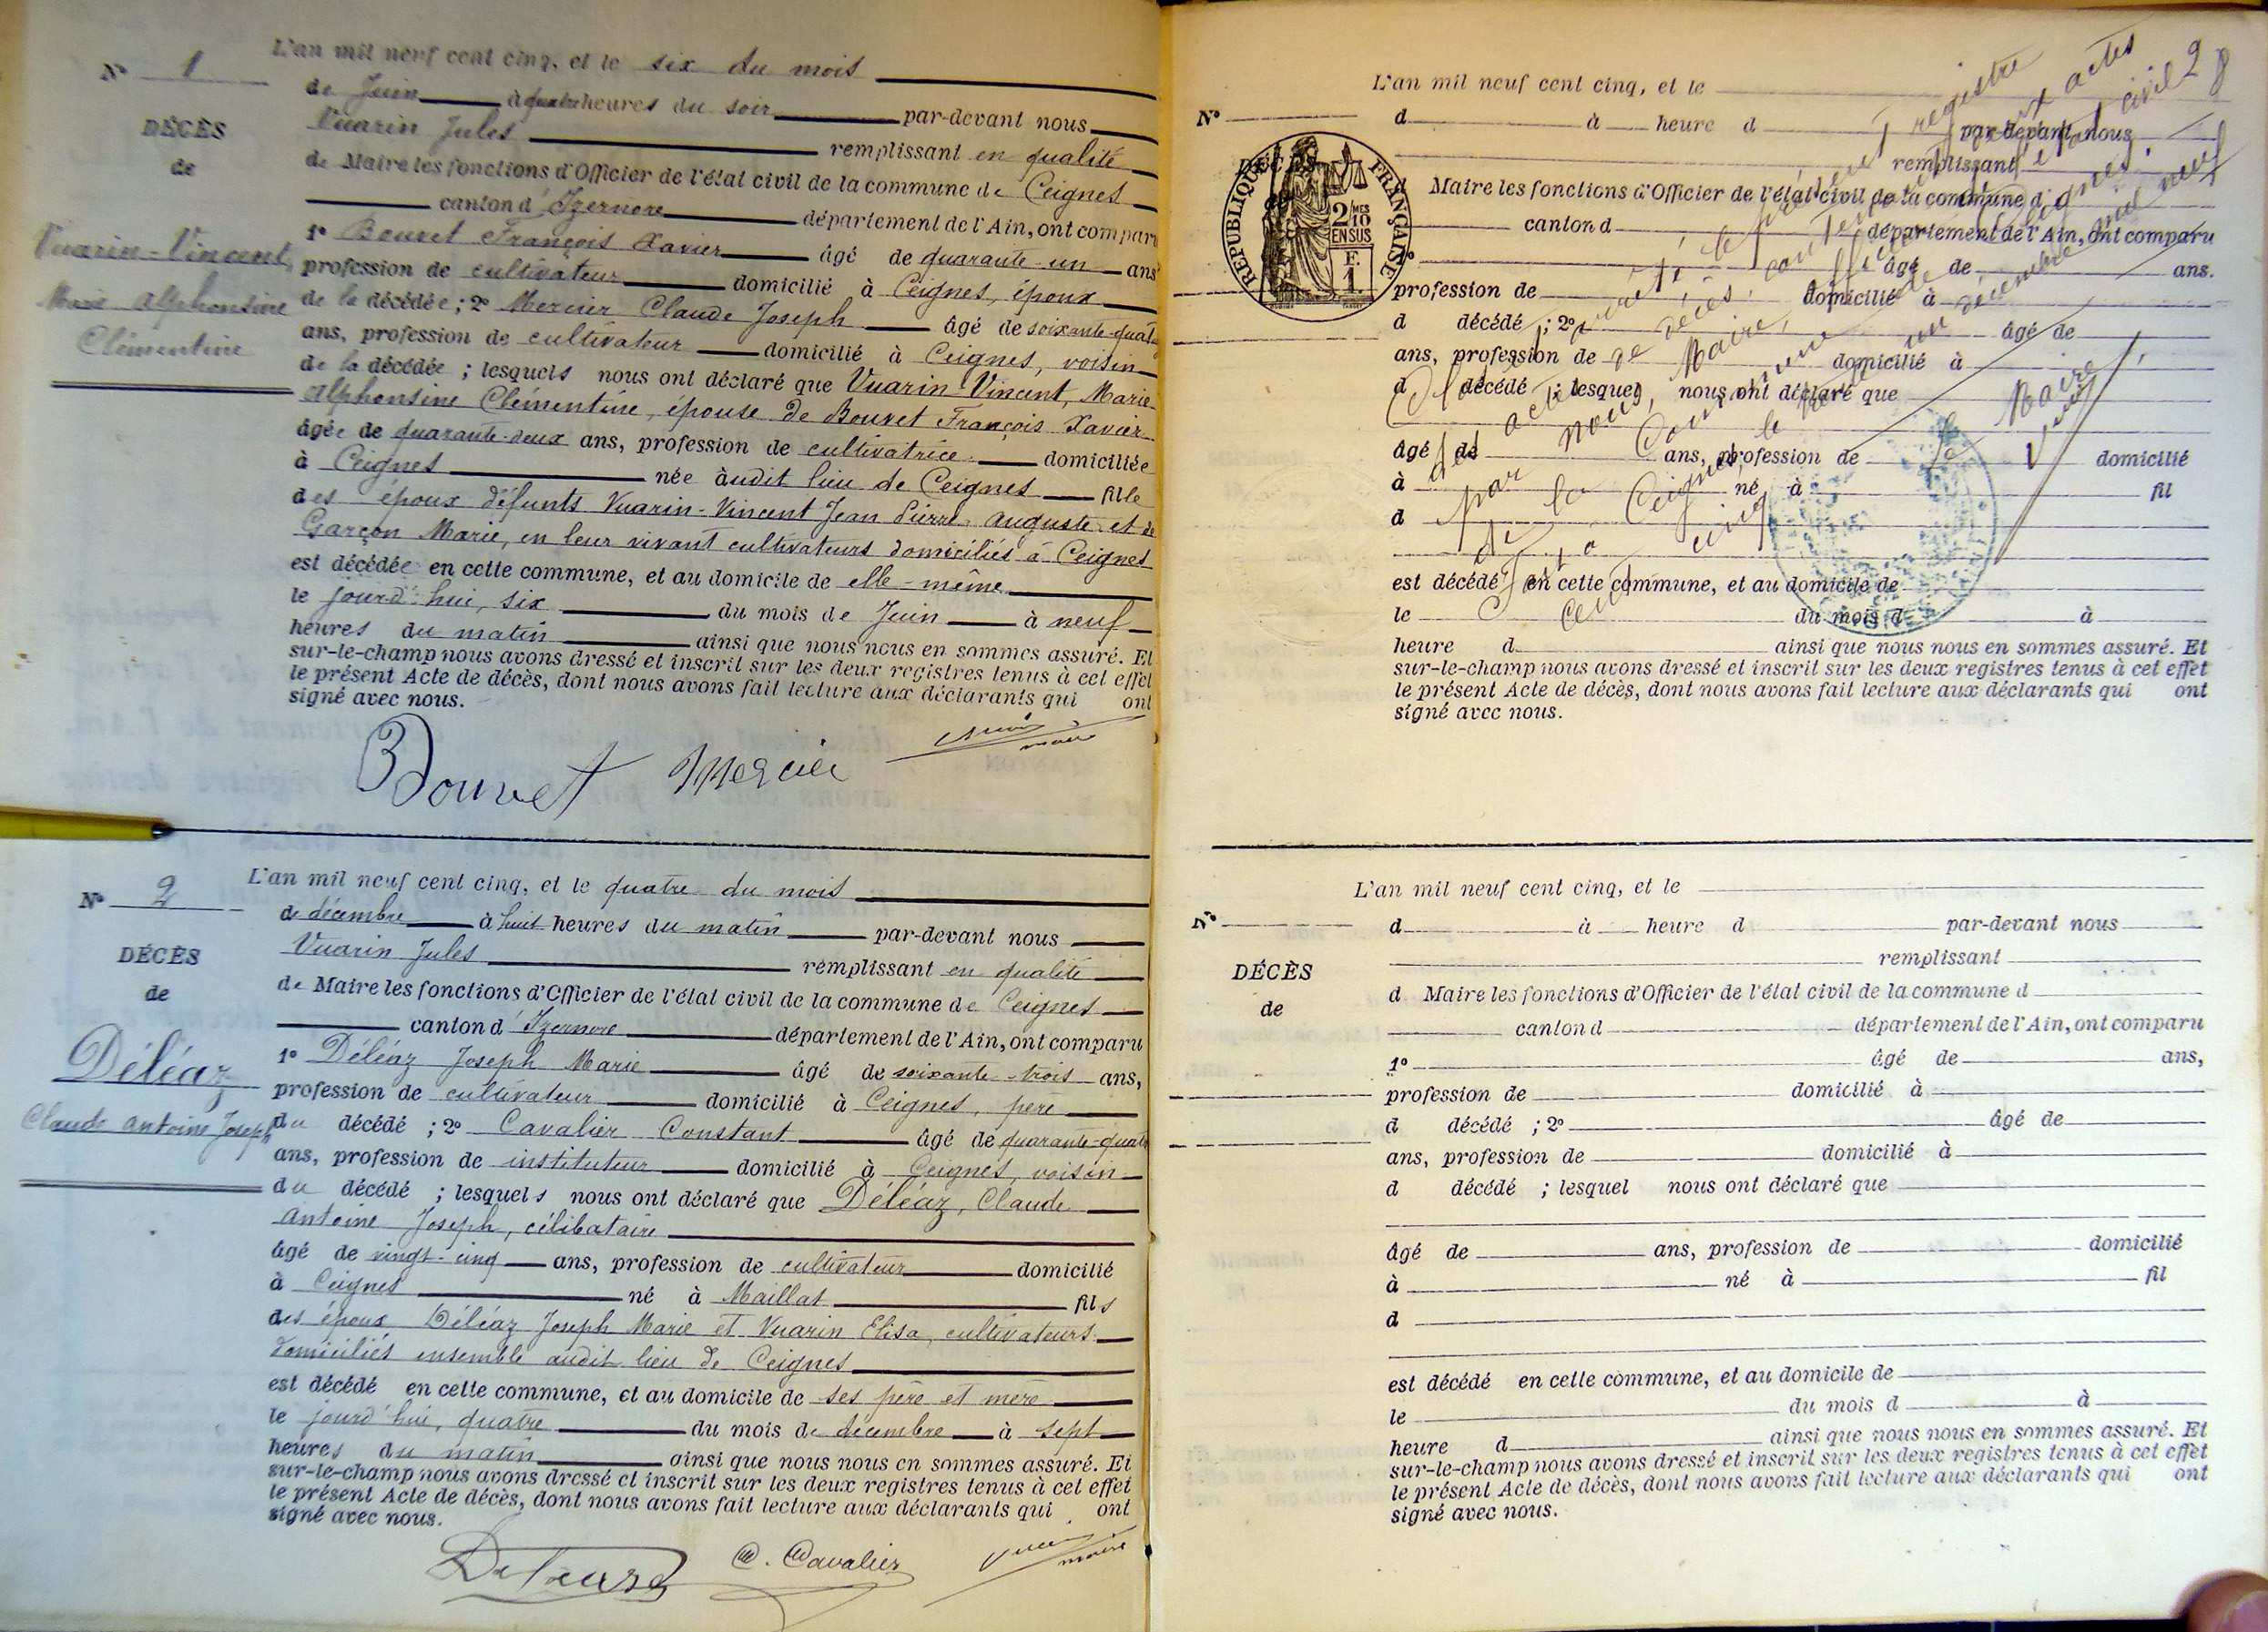 N° 1
DÉCÈS
de
Vuarin-Vincent,
Marie Alphonsine
Clémentine
L'an mil neuf cent cinq, et le six du mois
de Juin à quatre heures du soir par-devant nous
Vuarin Jules remplissant en qualité
de Maire les fonctions d'Officier de l'état civil de la commune de Ceignes
canton d'Izernore département de l'Ain, ont comparu
1° Bouvet François Xavier âgé de quarante-un ans
profession de cultivateur domicilié à Ceignes, époux
de la décédée ; 2° Mercier Claude Joseph âgé de soixante-quatre
ans, profession de cultivateur domicilié à Ceignes, voisin
de la décédée ; lesquels nous ont déclaré que Vuarin-Vincent, Marie
Alphonsine Clémentine, épouse de Bouvet François Xavier
âgée de quarante-deux ans, profession de cultivatrice domiciliée
à Ceignes née audit lieu de Ceignes fille
des époux défunts Vuarin-Vincent Jean Pierre Auguste et de
Garçon Marie, en leur vivant cultivateurs domiciliés à Ceignes
est décédée en cette commune, et au domicile de elle-même
le jourd'hui, six du mois de Juin à neuf
heures du matin ainsi que nous nous en sommes assuré. Et
sur-le-champ nous avons dressé et inscrit sur les deux registres tenus à cet effet
le présent Acte de décès, dont nous avons fait lecture aux déclarants qui ont
signé avec nous.
Bouvet Mercier
maire
N° 2
DÉCÈS
de
Déléaz
Claude Antoine Joseph
L'an mil neuf cent cinq, et le quatre du mois
de décembre à huit heures du matin par-devant nous
Vuarin Jules remplissant en qualité
de Maire les fonctions d'Officier de l'état civil de la commune de Ceignes
canton d'Izernore département de l'Ain, ont comparu
1° Déléaz Joseph Marie âgé de soixante-trois ans,
profession de cultivateur domicilié à Ceignes, père
du décédé ; 2° Cavalier Constant âgé de quarante-quatre
ans, profession de instituteur domicilié à Ceignes, voisin
du décédé ; lesquels nous ont déclaré que Déléaz, Claude
Antoine Joseph, célibataire
âgé de vingt-cinq ans, profession de cultivateur domicilié
à Ceignes né à Maillat fils
des époux Déléaz Joseph Marie et Vuarin Elisa, cultivateurs
domiciliés ensemble audit lieu de Ceignes
est décédé en cette commune, et au domicile de ses père et mère
le jourd'hui, quatre du mois de décembre à sept
heures du matin ainsi que nous nous en sommes assuré. Et
sur-le-champ nous avons dressé et inscrit sur les deux registres tenus à cet effet
le présent Acte de décès, dont nous avons fait lecture aux déclarants qui ont
signé avec nous.
C. Cavalier
maire
28
N°
DÉCÈS
RÉPUBLIQUE FRANÇAISE
2/10
EN SUS
F.
1.
L'an mil neuf cent cinq, et le
d à heure d par-devant nous
remplissant
Maire les fonctions d'Officier de l'état civil de la commune d
canton d département de l'Ain, ont comparu
âgé de ans.
profession de domicilié à
d décédé ; 2° âgé de
ans, profession de domicilié à
d décédé ; lesquel nous ont déclaré que
âgé de ans, profession de domicilié
à né à fil
d
est décédé en cette commune, et au domicile de
le du mois d à
heure d ainsi que nous nous en sommes assuré. Et
sur-le-champ nous avons dressé et inscrit sur les deux registres tenus à cet effet
le présent Acte de décès, dont nous avons fait lecture aux déclarants qui ont
signé avec nous.
le présent registre
des actes de décès, contenant deux actes
par nous, Maire, officier de l'état civil
de la Commune de Ceignes.
Fait à Ceignes, le trente un décembre mil neuf
cent cinq
Le Maire,
N°
DÉCÈS
de
L'an mil neuf cent cinq, et le
d à heure d par-devant nous
remplissant
d Maire les fonctions d'Officier de l'état civil de la commune d
canton d département de l'Ain, ont comparu
1° âgé de ans,
profession de domicilié à
d décédé ; 2° âgé de
ans, profession de domicilié à
d décédé ; lesquel nous ont déclaré que
âgé de ans, profession de domicilié
à né à fil
d
est décédé en cette commune, et au domicile de
le du mois d à
heure d ainsi que nous nous en sommes assuré. Et
sur-le-champ nous avons dressé et inscrit sur les deux registres tenus à cet effet
le présent Acte de décès, dont nous avons fait lecture aux déclarants qui ont
signé avec nous.